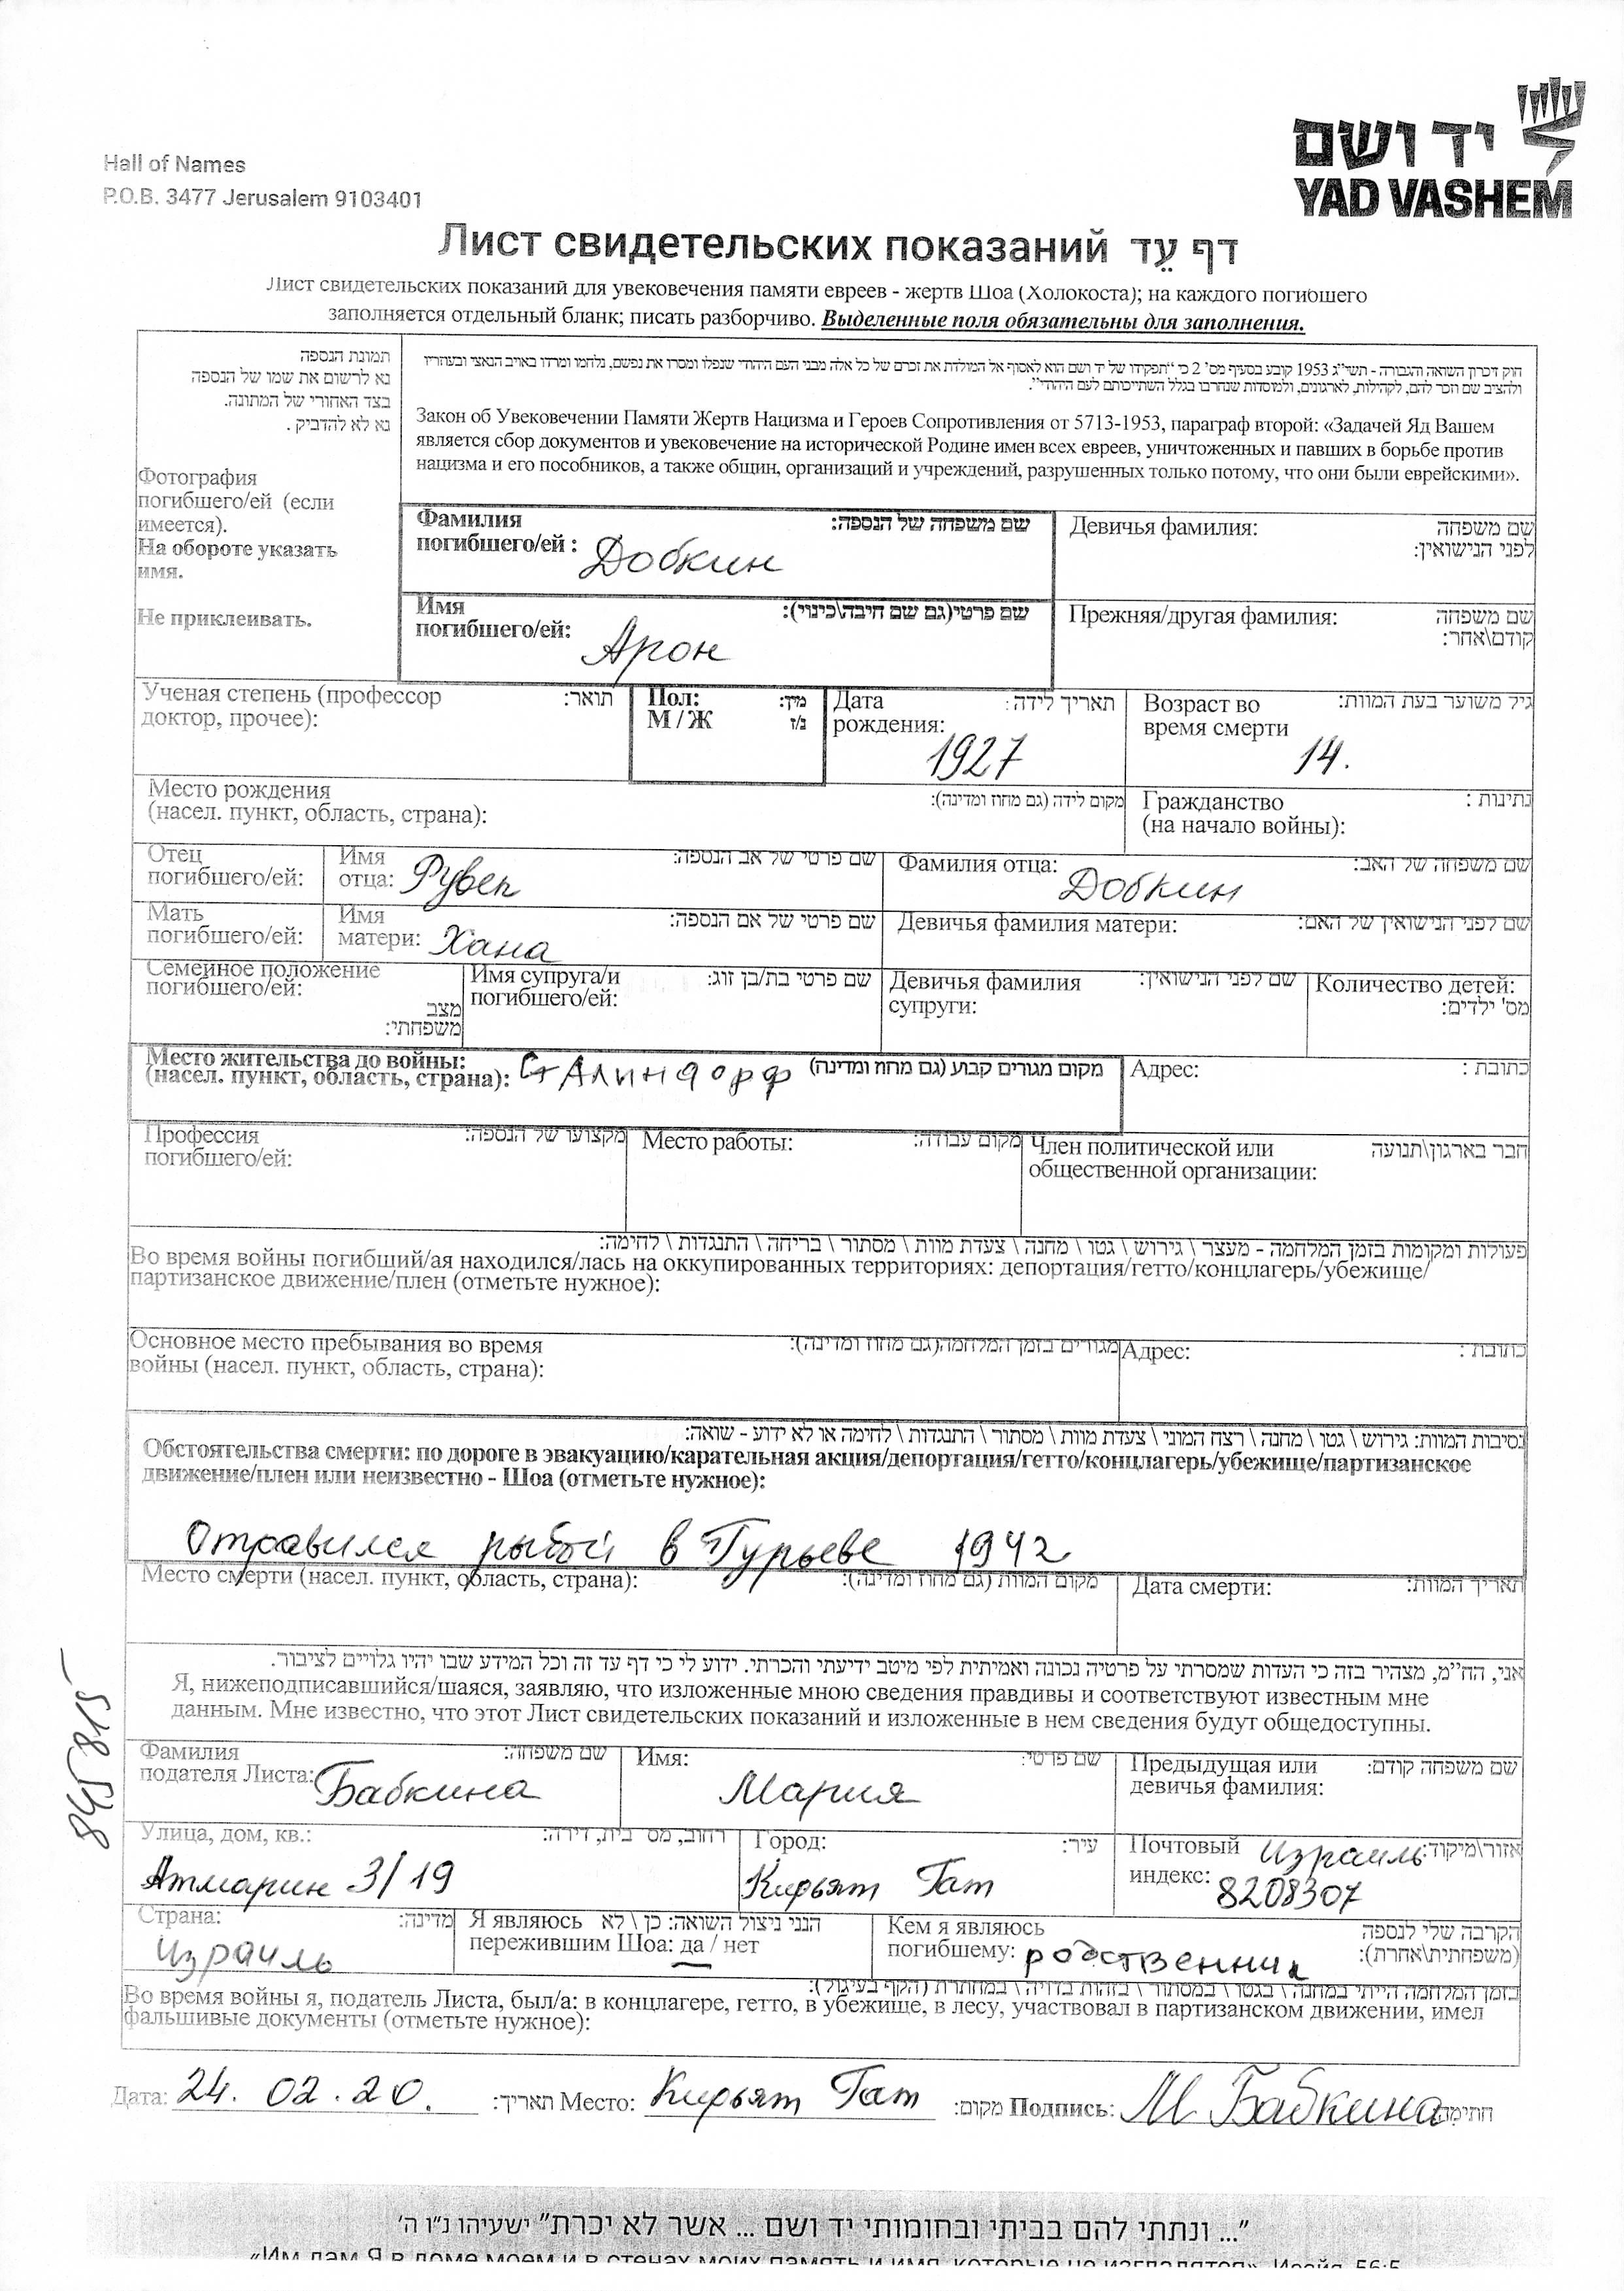 Hall of Names
P.O.B. 3477 Jerusalem 9103401
יד ושם
YAD VASHEM
Лист свидетельских показаний דף עֵד
Лист свидетельских показаний для увековечения памяти евреев - жертв Шоа (Холокоста); на каждого погибшего
заполняется отдельный бланк; писать разборчиво. Выделенные поля обязательны для заполнения.
תמונת הנספה
נא לרשום את שמו של הנספה
בצד האחורי של המתונה.
נא לא להדביק .
Фотография
погибшего/ей (если
имеется).
На обороте указать
имя.
Не приклеивать.
חוק זיכרון השואה והגבורה - תשי״ג 1953 קובע בסעיף מס׳ 2 כי ״תפקידו של יד ושם הוא לאסוף אל המולדת את זכרם של כל אלה מבני העם היהודי שנפלו ומסרו את נפשם, נלחמו ומרדו באויב הנאצי ובעוזריו
ולהציב שם וזכר להם, לקהילות, לארגונים, ולמוסדות שנחרבו בגלל השתייכותם לעם היהודי״.
Закон об Увековечении Памяти Жертв Нацизма и Героев Сопротивления от 5713-1953, параграф второй: «Задачей Яд Вашем
является сбор документов и увековечение на исторической Родине имен всех евреев, уничтоженных и павших в борьбе против
нацизма и его пособников, а также общин, организаций и учреждений, разрушенных только потому, что они были еврейскими».
Фамилия שם משפחה של הנספה:
погибшего/ей : Добкин
Девичья фамилия: שם משפחה
לפני הנישואין:
Имя שם פרטי(גם שם חיבה\כינוי):
погибшего/ей: Арон
Прежняя/другая фамилия: שם משפחה
קודם\אחר:
Ученая степень (профессор תואר:
доктор, прочее):
Пол: מין:
М / Ж ז/נ
Дата תאריך לידה:
рождения: 1927
Возраст во גיל משוער בעת המוות:
время смерти 14.
Место рождения מקום לידה (גם מחוז ומדינה):
(насел. пункт, область, страна):
Гражданство נתינות :
(на начало войны):
Отец
погибшего/ей:
Имя שם פרטי של אב הנספה:
отца: Рувен
Фамилия отца: שם משפחה של האב:
Добкин
Мать
погибшего/ей:
Имя שם פרטי של אם הנספה:
матери: Хана
Девичья фамилия матери: שם לפני הנישואין של האם:
Семейное положение
погибшего/ей:
מצב
משפחתי:
Имя супруга/и שם פרטי בת/בן זוג:
погибшего/ей:
Девичья фамилия שם לפני הנישואין:
супруги:
Количество детей:
מס' ילדים:
Место жительства до войны: מקום מגורים קבוע (גם מחוז ומדינה)
(насел. пункт, область, страна): Сталиндорф
Адрес: כתובת :
Профессия מקצועו של הנספה:
погибшего/ей:
Место работы: מקום עבודה:
Член политической или חבר בארגון\תנועה
общественной организации:
פעולות ומקומות בזמן המלחמה - מעצר \ גירוש \ גטו \ מחנה \ צעדת מוות \ מסתור \ בריחה \ התנגדות \ לחימה:
Во время войны погибший/ая находился/лась на оккупированных территориях: депортация/гетто/концлагерь/убежище/
партизанское движение/плен (отметьте нужное):
Основное место пребывания во время מגורים בזמן המלחמה(גם מחוז ומדינה):
войны (насел. пункт, область, страна):
Адрес: כתובת :
נסיבות המוות: גירוש \ גטו \ מחנה \ רצח המוני \ צעדת מוות \ מסתור \ התנגדות \ לחימה או לא ידוע - שואה:
Обстоятельства смерти: по дороге в эвакуацию/карательная акция/депортация/гетто/концлагерь/убежище/партизанское
движение/плен или неизвестно - Шоа (отметьте нужное):
Отравился рыбой в Гурьеве 1942
Место смерти (насел. пункт, область, страна): מקום המוות (גם מחוז ומדינה):
Дата смерти: תאריך המוות:
אני, הח״מ, מצהיר בזה כי העדות שמסרתי על פרטיה נכונה ואמיתית לפי מיטב ידיעתי והכרתי. ידוע לי כי דף עד זה וכל המידע שבו יהיו גלויים לציבור.
Я, нижеподписавшийся/шаяся, заявляю, что изложенные мною сведения правдивы и соответствуют известным мне
данным. Мне известно, что этот Лист свидетельских показаний и изложенные в нем сведения будут общедоступны.
845815
Фамилия שם משפחה:
подателя Листа: Бабкина
Имя: שם פרטי:
Мария
Предыдущая или שם משפחה קודם:
девичья фамилия:
Улица, дом, кв.: רחוב, מס בית, דירה:
Атмарин 3/19
Город: עיר:
Кирьят Гат
Почтовый Израиль אזור\מיקוד:
индекс: 8208307
Страна: מדינה:
Израиль
Я являюсь הנני ניצול השואה: כן \ לא
пережившим Шоа: да / нет
Кем я являюсь הקרבה שלי לנספה
погибшему: родственник (משפחתית\אחרת):
בזמן המלחמה הייתי במחנה \ בגטו \ במסתור \ בזהות בדויה \ במחתרת (הקף בעיגול):
Во время войны я, податель Листа, был/а: в концлагере, гетто, в убежище, в лесу, участвовал в партизанском движении, имел
фальшивые документы (отметьте нужное):
Дата: 24. 02. 20. תאריך: Место: Кирьят Гат מקום: Подпись: М Бабкина חתימה
״... ונתתי להם בביתי ובחומותי יד ושם ... אשר לא יכרת״ ישעיהו נ״ו ה׳
«Им дам Я в доме моем и в стенах моих память и имя, которые не изгладятся». Исайя, 56:5